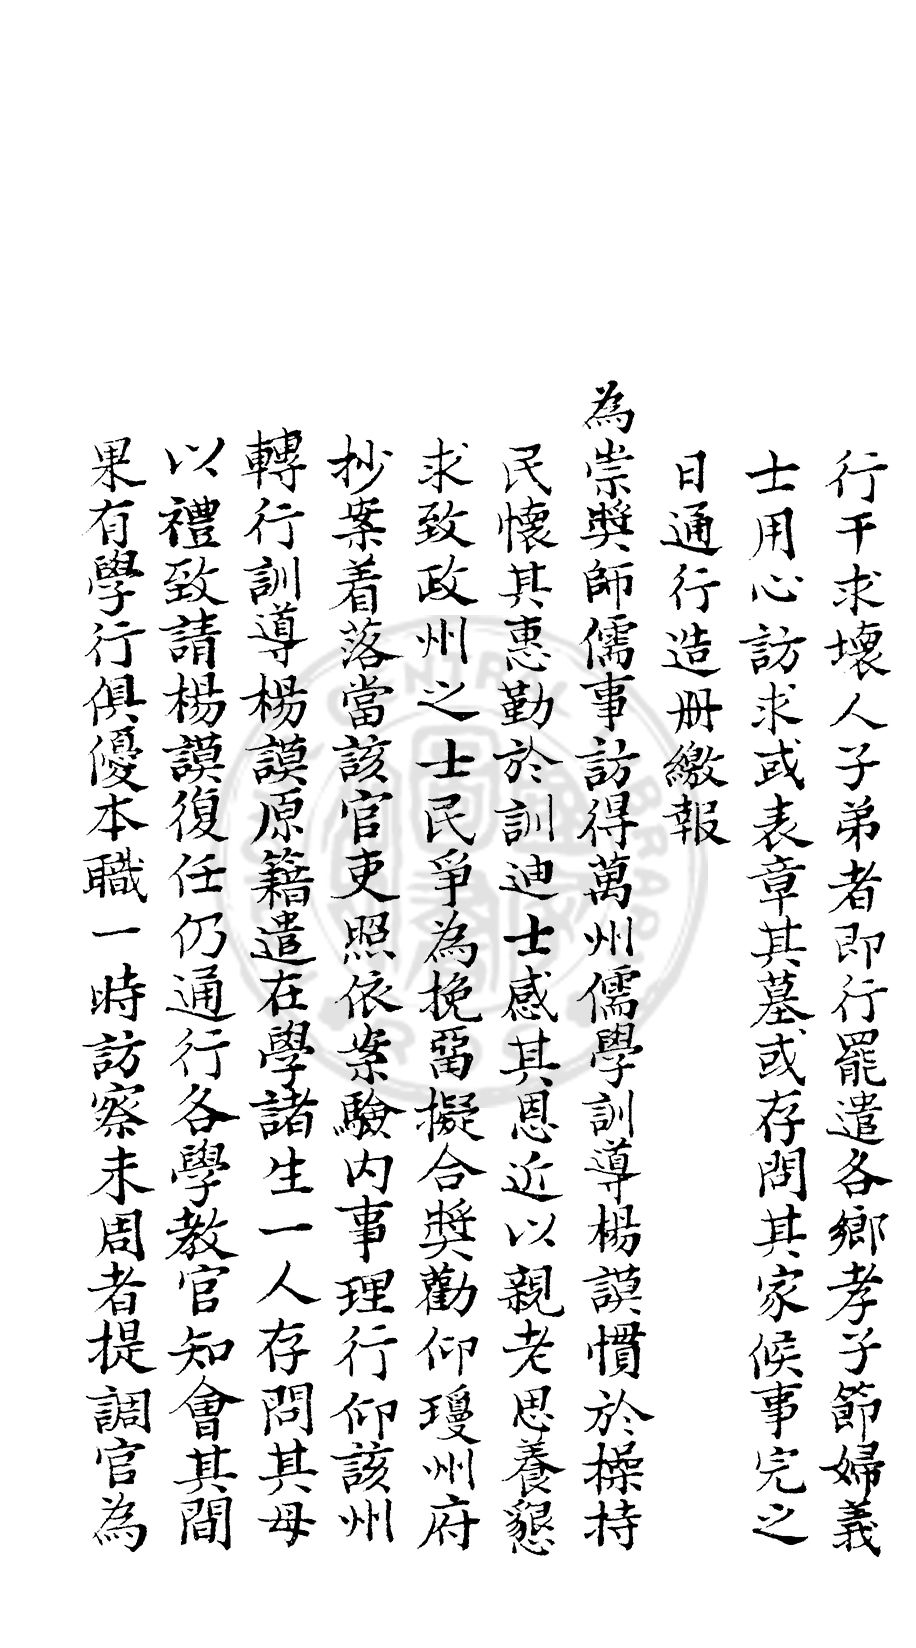 行干求壞人子弟者即行罷遣各鄉孝子節婦義
士用心訪求或表章其墓或存問其家候事完之
日通行造册繳報
為崇獎師儒事訪得萬州儒學訓導楊謨慣於操持
民懷其惠勤於訓迪士感其恩近以親老思養懇
求致政州之士民爭為挽畱擬合獎勸仰瓊州府
抄案着落當該官吏照依案驗内事理行仰該州
轉行訓導楊謨原籍遣在學諸生一人存問其母
以禮致請楊謨復任仍通行各學教官知會其間
果有學行俱優本職一時訪察未周者提調官為
CENTRAL LIBRARY